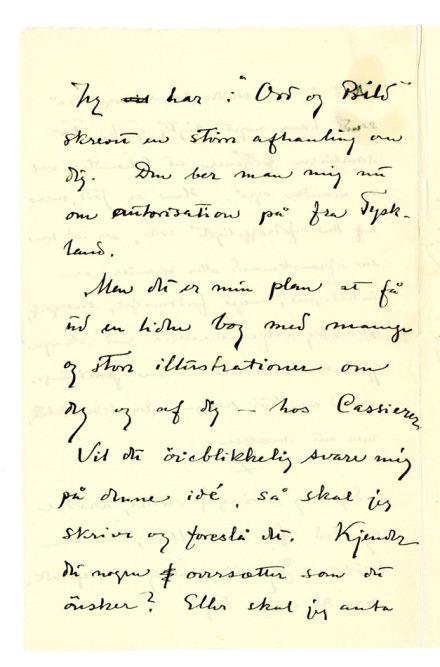 Jeg har i "Ord og Bild"
skrevet en større afhanling om
dig. Den ber man mig nu
om autorisation på fra Tysk-
land.
Men det er min plan at få
ud en liden bog med mange
og store illustrationer om
dig og af dig — hos Cassierer.
Vil du öieblikkelig svare mig
på denne idé, så skal jeg
skrive og foreslå det. Kjender
du nogen oversætter som du
önsker? Eller skal jeg anta